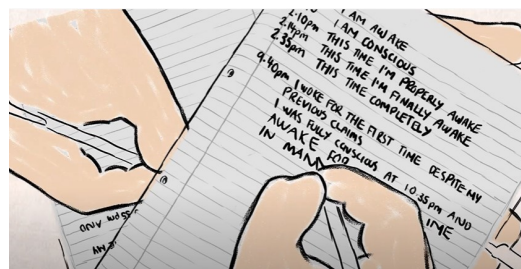 I AM AWAKE
I AM CONSCIOUS
2.10pm THIS TIME I'M PROPERLY AWAKE
2.14pm THIS TIME I'M FINALLY AWAKE
2.35pm THIS TIME COMPLETELY
9.40pm I WOKE FOR THE FIRST TIME DESPITE MY
PREVIOUS CLAIMS
I WAS FULLY CONSCIOUS AT 10.35pm AND
AWAKE FOR
IN MAN
AND